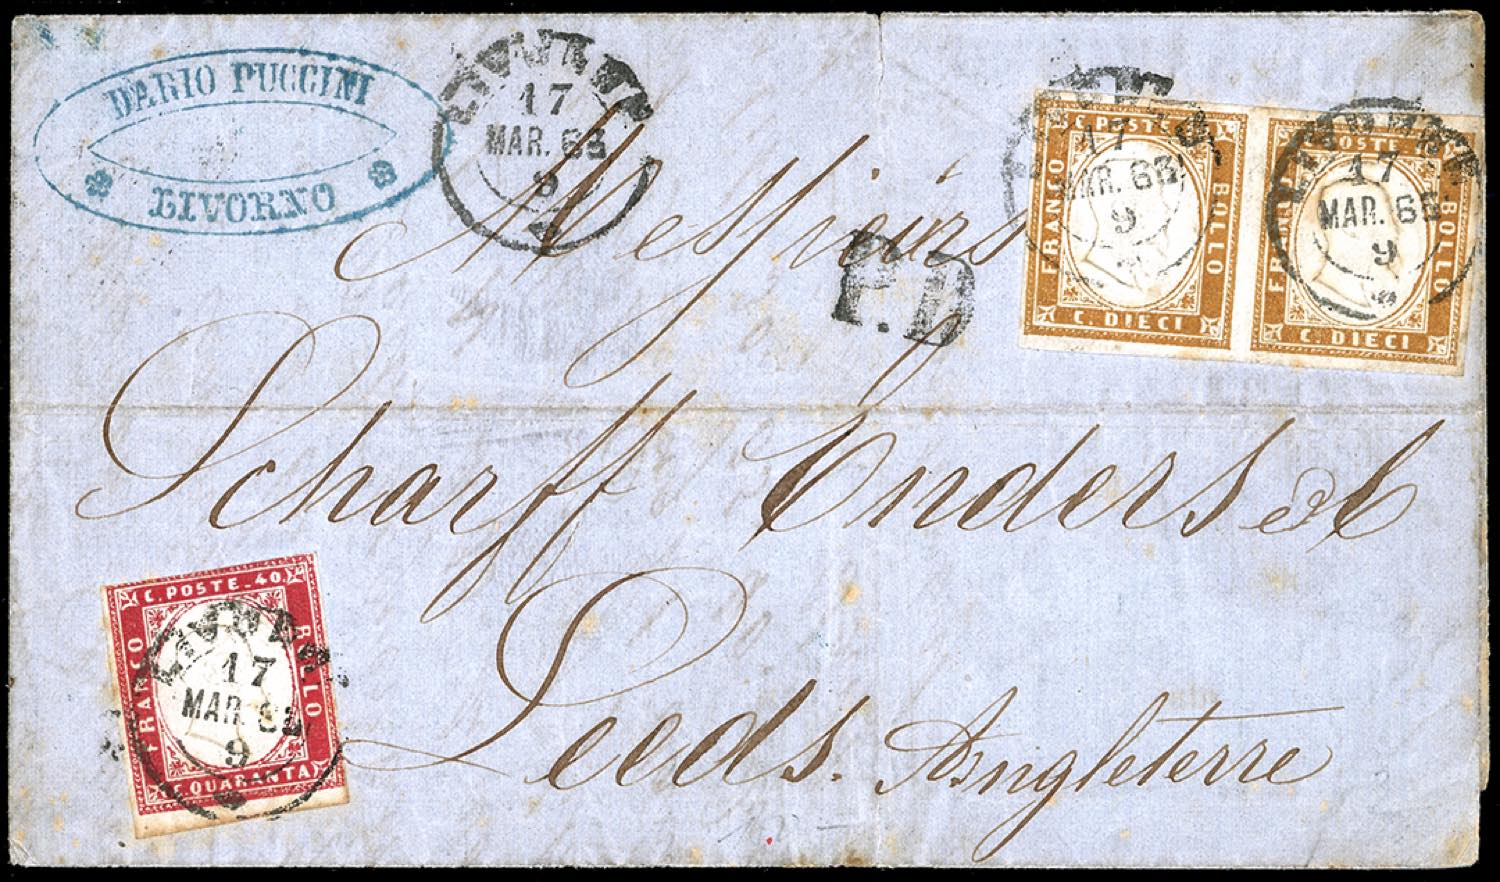 DARIO PUCCINI
LIVORNO
LIVORNO
17
MAR. 63
9
Messieurs
P.D
C. POSTE 10
FRANCO
BOLLO
C. DIECI
17
MAR. 63
9
C. POSTE 10
FRANCO
BOLLO
C. DIECI
LIVORNO
17
MAR. 63
9
Scharff Enders & C
C. POSTE. 40.
FRANCO
BOLLO
C. QUARANTA
LIVORNO
17
MAR. 63
9
Leeds. Angleterre